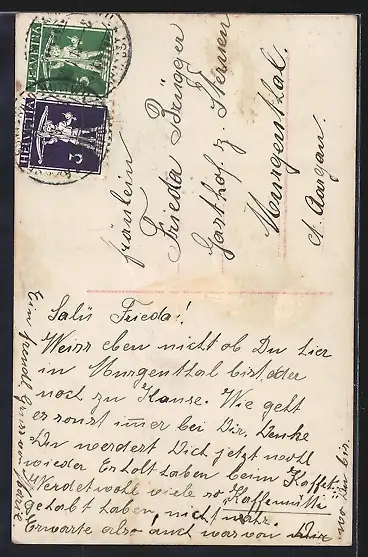 HELVETIA
HELVETIA
Fräulein
Frieda Brügger
Gasthof z Sternen
Murgenthal.
Ct. Aargau.
Salü Frieda!
Weiss eben nicht ob Du hier
in Murgenthal bist, oder
noch zu Hause. Wie geht
es sonst imer bei Dir. Denke
Du werdest Dich jetzt wohl
wieder Erholt haben beim Kaffe.
Werdet wohl viele so Kaffemütti
gehabt haben, nicht wahr.
Erwarte also auch was von Dir
wo Du bis.
Ein freundl. Gruss von